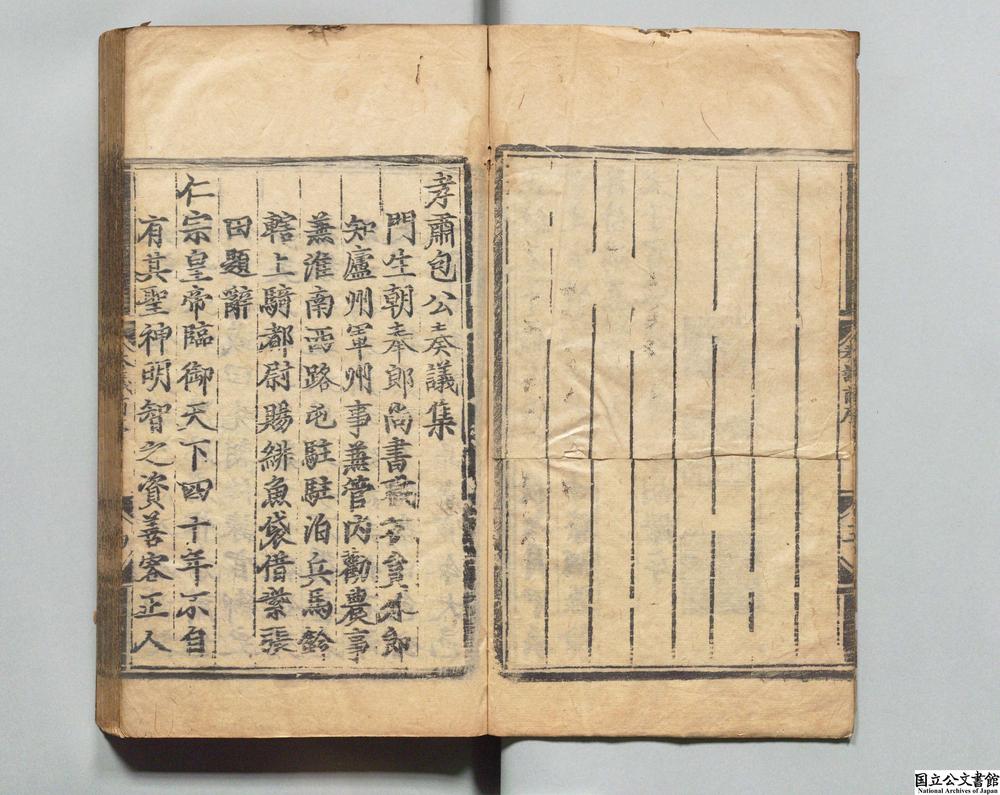 孝肅包公奏議集
門生朝奉郎尚書職方員外郎
知廬州軍州事兼管內勸農事
兼淮南西路屯駐駐泊兵馬鈐
轄上騎都尉賜緋魚袋借紫張
田題辭
仁宗皇帝臨御天下四十年不自
有其聖神明智之資善容正人
国立公文書館
National Archives of Japan